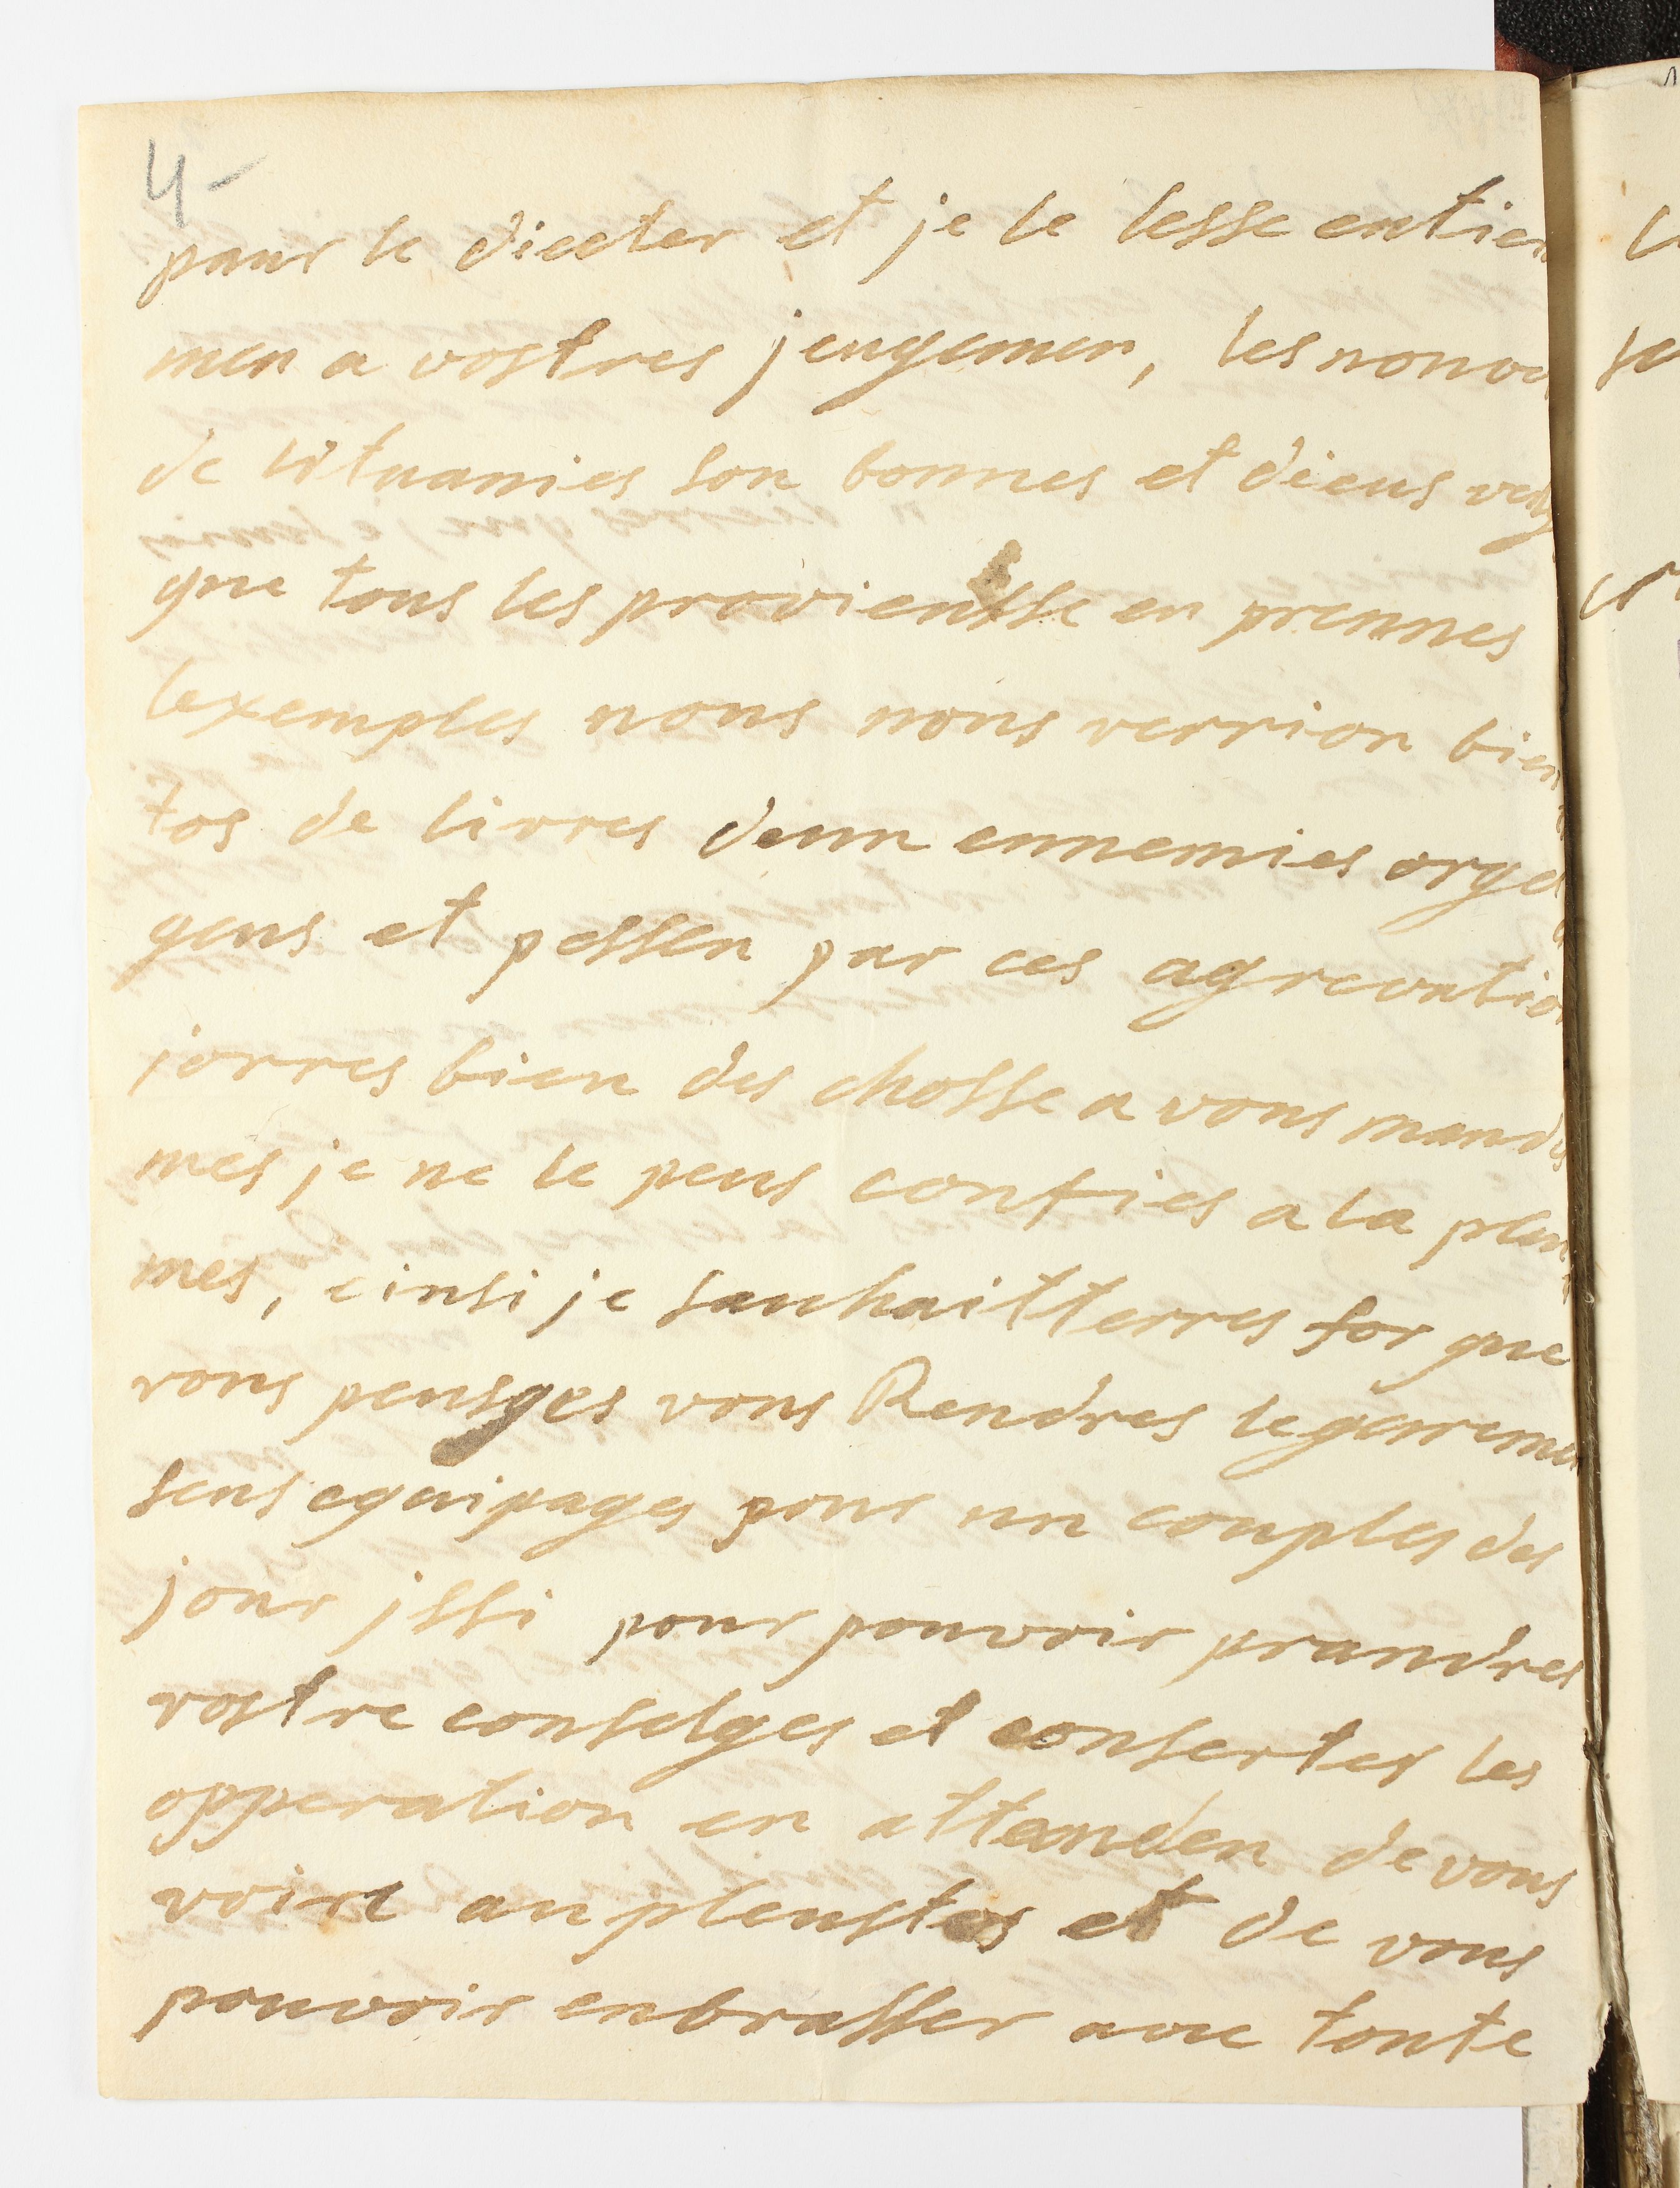 4-
pour le diecter et je le lesse entier
men a vostres jeugemen, les nouve
de lituanies son bonnes et dieus veug
que tous les proviensse en prennes
lexemples nous nous verrion bien
tos de livres deun ennemies orge
geus et pessen par ces agrevatio
jorres bien des chosse a vous mande
mes je ne le peus confies a la pleu
mes, einsi je sauhaitterres for que
vous peusges vous Rendres legerreme
sens equipages pour un couples des
jour jssi pour pouvoir prandres
vostre conselges et consertes les
opperation en attanden de vous
voire au pleustos et de vous
pouvoir enbrasser avec toute